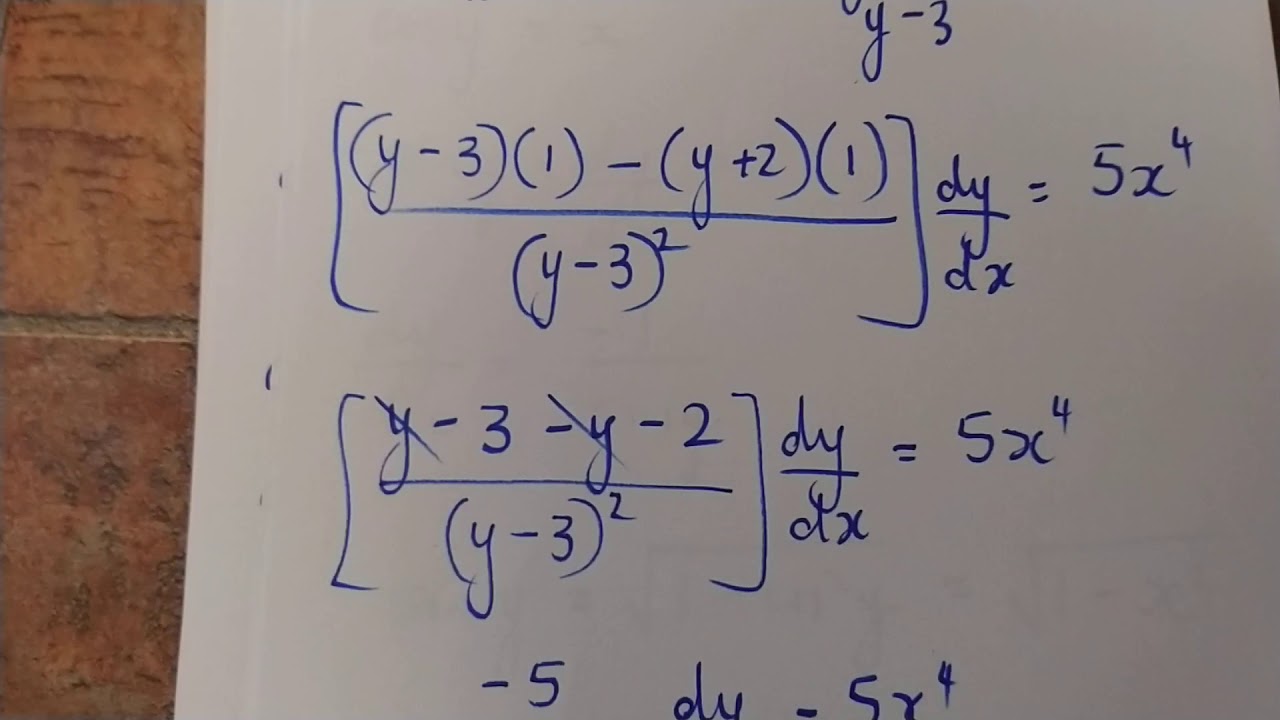 y - 3
[((y - 3)(1) - (y + 2)(1)) / (y - 3)²] dy/dx = 5x⁴
[(y - 3 - y - 2) / (y - 3)²] dy/dx = 5x⁴
- 5 dy = 5x⁴